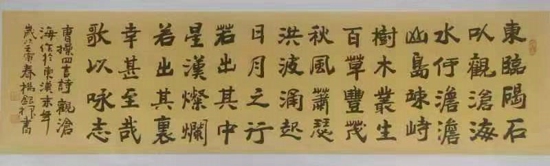 東臨碣石
以觀滄海
水何澹澹
山島竦峙
樹木叢生
百草豐茂
秋風蕭瑟
洪波涌起
日月之行
若出其中
星漢燦爛
若出其裏
幸甚至哉
歌以咏志
曹操四言詩觀滄
海作於東漢末年
歲次壬寅春楊書